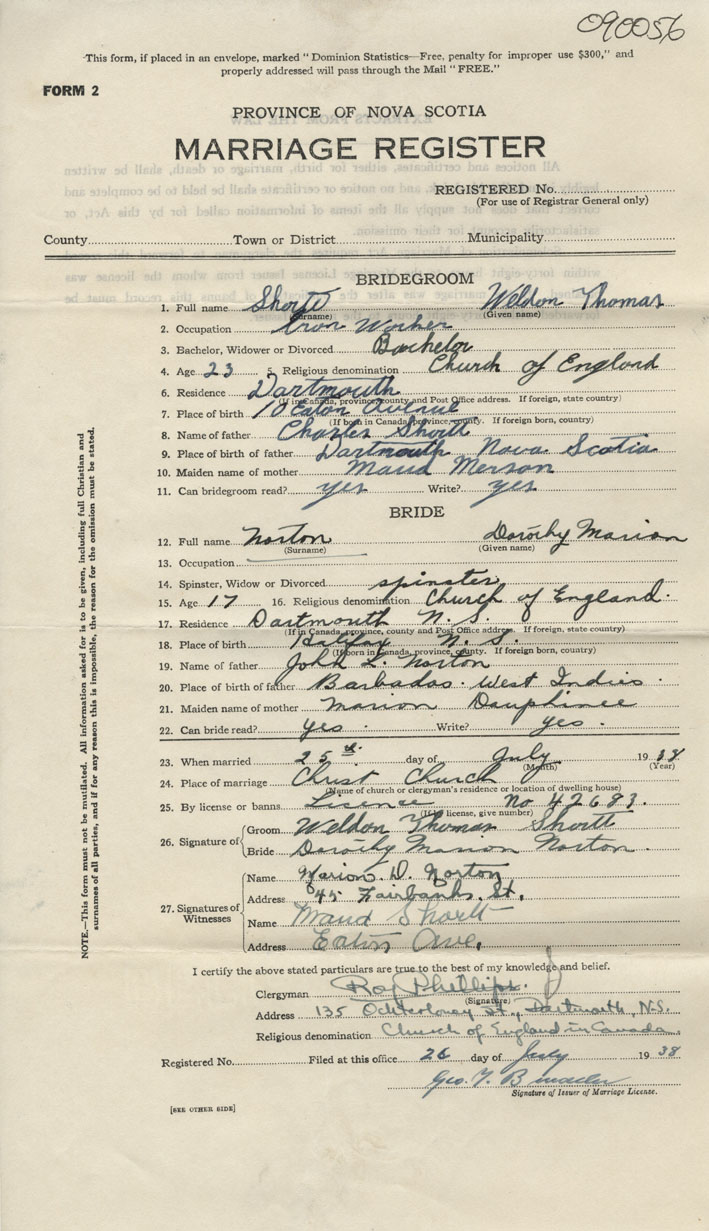 090056
This form, if placed in an envelope, marked "Dominion Statistics—Free, penalty for improper use $300," and
properly addressed will pass through the Mail "FREE."
FORM 2
PROVINCE OF NOVA SCOTIA
MARRIAGE REGISTER
REGISTERED No.
(For use of Registrar General only)
County Town or District Municipality
BRIDEGROOM
1. Full name Shortt Weldon Thomas
(Surname) (Given name)
2. Occupation Iron Worker
3. Bachelor, Widower or Divorced Bachelor
4. Age 23 5. Religious denomination Church of England
6. Residence Dartmouth
(If in Canada, province, county and Post Office address. If foreign, state country)
7. Place of birth 10 Eaton Avenue
(If born in Canada, province, county. If foreign born, country)
8. Name of father Charles Shortt
9. Place of birth of father Dartmouth Nova Scotia
10. Maiden name of mother Maud Merson
11. Can bridegroom read? yes Write? yes
BRIDE
12. Full name Norton Dorothy Marion
(Surname) (Given name)
13. Occupation
14. Spinster, Widow or Divorced spinster
15. Age 17 16. Religious denomination Church of England.
17. Residence Dartmouth N. S.
(If in Canada, province, county and Post Office address. If foreign, state country)
18. Place of birth Halifax N. S.
(If born in Canada, province, county. If foreign born, country)
19. Name of father John L. Norton
20. Place of birth of father Barbados. West Indies.
21. Maiden name of mother Marion Dauphinee
22. Can bride read? yes. Write? yes.
23. When married 25th. day of July 1938
(Month) (Year)
24. Place of marriage Christ Church
(Name of church or clergyman's residence or location of dwelling house)
25. By license or banns Licence No 42683.
(If by license, give number)
26. Signature of Groom Weldon Thomas Shortt
Bride Dorothy Marion Norton.
27. Signatures of Witnesses
Name Marion. D. Norton
Address 45 Fairbanks St.
Name Maud Shortt
Address Eaton Ave.
I certify the above stated particulars are true to the best of my knowledge and belief.
Clergyman Roy Phillips.
(Signature)
Address 135 Ochterloney St., Dartmouth, N.S.
Religious denomination Church of England in Canada
Registered No. Filed at this office 26 day of July 1938
Geo. T.
Signature of Issuer of Marriage License.
[SEE OTHER SIDE]
NOTE.—This form must not be mutilated. All information asked for is to be given, including full Christian and
surnames of all parties, and if for any reason this is impossible, the reason for the omission must be stated.